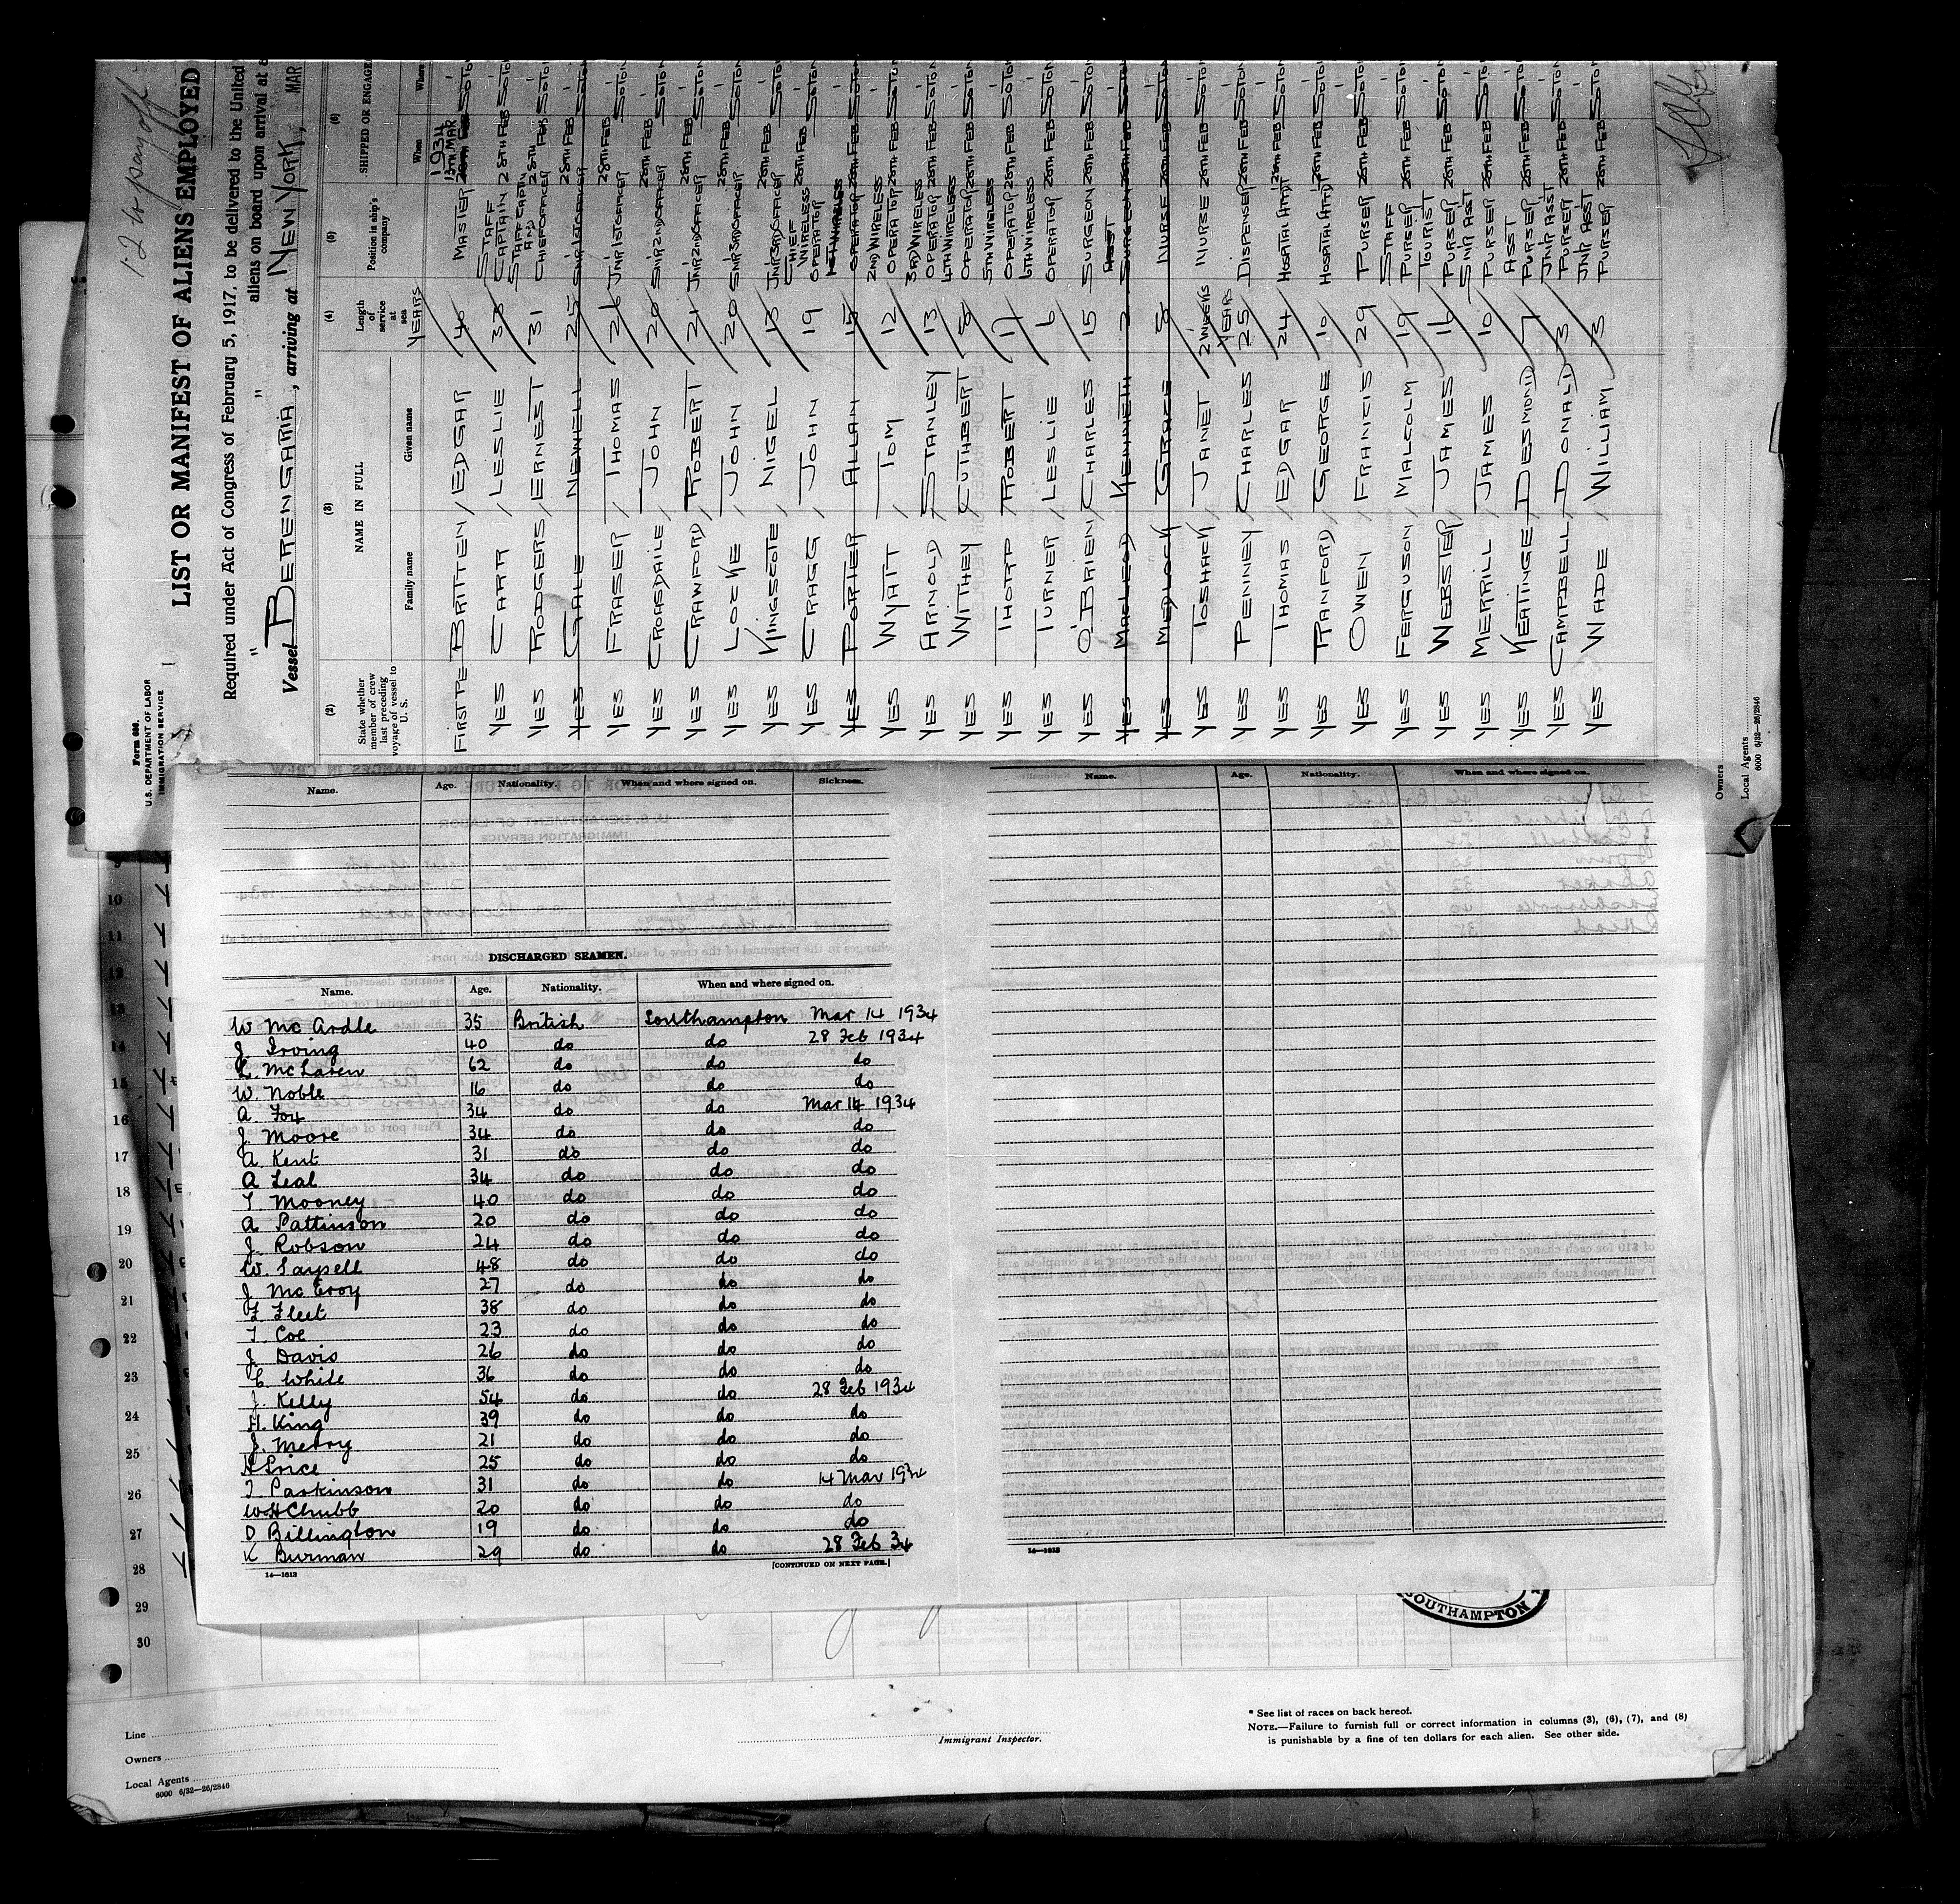 1-2 to pay off.
Form 689.
U.S. DEPARTMENT OF LABOR
IMMIGRATION SERVICE
LIST OR MANIFEST OF ALIENS EMPLOYED
Required under Act of Congress of February 5, 1917, to be delivered to the United
" " aliens on board upon arrival at a
Vessel BERENGARIA, arriving at NEW YORK, MAR
(2) (3) (4) (5) (6)
State whether member of crew last preceding voyage of vessel to U. S.
NAME IN FULL
Family name Given name
Length of service at sea
YEARS
Position in ship's company
SHIPPED OR ENGAGE
When Where
1934
FIRST BRITTEN EDGAR 40 MASTER 13TH MAR SOTON
YES CARR LESLIE 33 STAFF CAPTAIN 28TH FEB SOTON
YES RODGERS ERNEST 31 STAFF CAPTN AND CHIEF OFFICER 28TH FEB SOTON
YES GALE NEWELL 25 SNR 1ST OFFICER 28TH FEB SOTON
YES FRASER THOMAS 26 JNR 1ST OFFICER 28TH FEB SOTON
YES CROASDAILE JOHN 20 SNR 2ND OFFICER 28TH FEB SOTON
YES CRAWFORD ROBERT 21 JNR 2ND OFFICER 28TH FEB SOTON
YES LOCKE JOHN 20 SNR 3RD OFFICER 28TH FEB SOTON
YES KINGSCOTE NIGEL 13 JNR 3RD OFFICER 28TH FEB SOTON
YES CRAGG JOHN 19 CHIEF WIRELESS OPERATOR 28TH FEB SOTON
YES PORTER ALLAN 15 1ST WIRELESS OPERATOR 28TH FEB SOTON
YES WYATT TOM 12 2ND WIRELESS OPERATOR 28TH FEB SOTON
YES ARNOLD STANLEY 13 3RD WIRELESS OPERATOR 28TH FEB SOTON
YES WITHEY CUTHBERT 8 4TH WIRELESS OPERATOR 28TH FEB SOTON
YES THORP ROBERT 11 5TH WIRELESS OPERATOR 28TH FEB SOTON
YES TURNER LESLIE 6 6TH WIRELESS OPERATOR 28TH FEB SOTON
YES O'BRIEN CHARLES 15 SURGEON 28TH FEB SOTON
YES MACLEOD KENNETH 2 ASST SURGEON 28TH FEB SOTON
YES MEDLOCK GRACE 8 NURSE 28TH FEB SOTON
YES TOSHACK JANET 2 WEEKS NURSE 28TH FEB SOTON
YES PENNEY CHARLES YEARS 25 DISPENSER 28TH FEB SOTON
YES THOMAS EDGAR 24 HOSPITAL ATTDT 28TH FEB SOTON
YES RANFORD GEORGE 10 HOSPITAL ATTDT 28TH FEB SOTON
YES OWEN FRANCIS 29 PURSER 28TH FEB SOTON
YES FERGUSON MALCOLM 19 STAFF PURSER 28TH FEB SOTON
YES WEBSTER JAMES 16 TOURIST PURSER 28TH FEB SOTON
YES MERRILL JAMES 10 SNR ASST PURSER 28TH FEB SOTON
YES KEATINGE DESMOND 7 ASST PURSER 28TH FEB SOTON
YES CAMPBELL DONALD 3 JNR ASST PURSER 28TH FEB SOTON
YES WADE WILLIAM 3 JNR ASST PURSER 28TH FEB SOTON
Owners
Local Agents
6000 6/32—26/2846
Name. Age. Nationality. When and where signed on. Sickness.
DISCHARGED SEAMEN.
Name. Age. Nationality. When and where signed on.
W. McArdle 35 British Southampton Mar 14 1934
J. Irving 40 do do 28 Feb 1934
L. McLaren 62 do do do
W. Noble 16 do do do
A. Fox 34 do do Mar 14 1934
J. Moore 34 do do do
A. Kent 31 do do do
A. Leal 34 do do do
T. Mooney 40 do do do
A. Pattinson 20 do do do
J. Robson 24 do do do
W. Saysell 48 do do do
J. McEroy 27 do do do
F. Fleet 38 do do do
T. Coe 23 do do do
J. Davis 26 do do do
C. White 36 do do do
J. Kelly 54 do do 28 Feb 1934
H. King 39 do do do
J. Merry 21 do do do
H Price 25 do do do
T Parkinson 31 do do 14 Mar 1934
W H Chubb 20 do do do
D Billington 19 do do do
K Burman 29 do do 28 Feb 34
14—1613
[CONTINUED ON NEXT PAGE.]
Name. Age. Nationality. When and where signed on.
14—1613
9
10
11
12
13
14
15
16
17
18
19
20
21
22
23
24
25
26
27
28
29
30
SOUTHAMPTON
Line
Owners
Local Agents
6000 6/32—26/2846
Immigrant Inspector.
* See list of races on back hereof.
NOTE.—Failure to furnish full or correct information in columns (3), (6), (7), and (8)
is punishable by a fine of ten dollars for each alien. See other side.